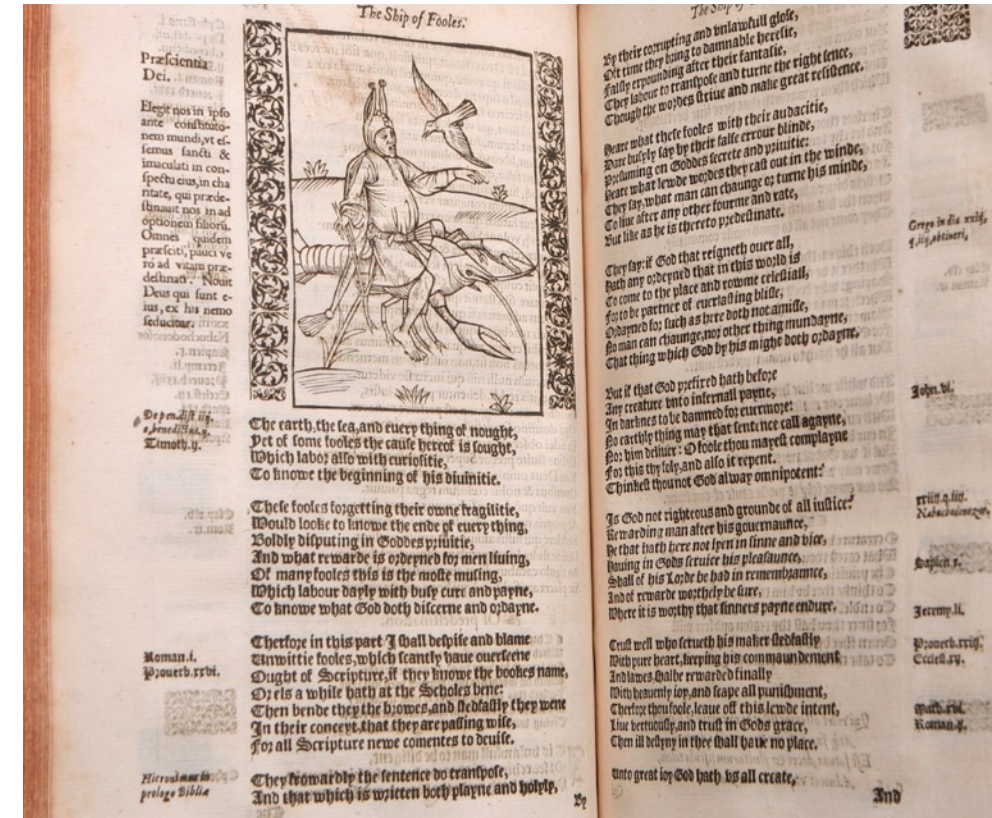 The Ship of Fooles.
Præscientia
Dei.
Elegit nos in ipso
ante constituto-
nem mundi, vt es-
semus sancti &
imaculati in con-
spectu eius, in cha
ritate, qui præde-
stinauit nos in ad
optionem filiorū.
Omnes quidem
præsciti, pauci ve
ro ad vitam præ-
destinati. Nouit
Deus qui sunt e-
ius, ex his nemo
seducitur.
De pen. dist. iiij.
Timoth.ij.
The earth, the sea, and euery thing of nought,
Yet of some fooles the cause hereof is sought,
Which labor also with curiositie,
To knowe the beginning of his diuinitie.
These fooles forgetting their owne fragilitie,
Would looke to knowe the ende of euery thing,
Boldly disputing in Goddes priuitie,
And what rewarde is ordeyned for men liuing,
Of many fooles this is the moste musing,
Which labour dayly with busy cure and payne,
To knowe what God doth discerne and ordayne.
Roman.i.
Prouerb.xxvi.
Therfore in this part I shall despise and blame
Unwittie fooles, which scantly haue ouerseene
Ought of Scripture, if they knowe the bookes name,
Or els a while hath at the Scholes bene:
Then bende they the browes, and stedfastly they wene
In their conceyt, that they are passing wise,
For all Scripture newe comentes to deuise.
Hieronimus in
prologo Bibliæ
They frowardly the sentence do transpose,
And that which is written both playne and holyly,
By
The Ship of
By their corrupting and vnlawfull glose,
Oft time they bring to damnable heresie,
Falsly expounding after their fantasie,
They labour to transpose and turne the right sence,
Though the wordes striue and make great resistence.
Heare what these fooles with their audacitie,
Dare busyly say by their false errour blinde,
Presuming on Goddes secrete and priuitie:
Heare what lewde wordes they cast out in the winde,
They say, what man can chaunge or turne his minde,
To liue after any other fourme and rate,
But like as he is thereto predestinate.
Grego in dis. xxiij.
q.iiij, obtineri,
They say: if God that reigneth ouer all,
Hath any ordeyned that in this world is
To come to the place and rowme celestiall,
For to be partner of euerlasting blisse,
Ordayned for such as here doth not amisse,
No man can chaunge, nor other thing mundayne,
That thing which God by his might doth ordayne,
But if that God prefired hath before
Any creature vnto infernall payne,
In darknes to be damned for euermore:
No earthly thing may that sentence call agayne,
Nor him deliuer: O foole thou mayest complayne
For this thy foly, and also it repent.
Thinkest thou not God alway omnipotent?
John.vi.
xxiij.q.iiij.
Nabuchodonozor.
Is God not righteous and grounde of all iustice?
Rewarding man after his gouernaunce,
He that hath here not lyen in sinne and vice,
Hauing in Gods seruice his pleasaunce,
Shall of his Lorde be had in remembraunce,
And of rewarde worthely be sure,
Where it is worthy that sinners payne endure,
Sapien.
Jeremy.li.
Trust well who serueth his maker stedfastly
With pure heart, keeping his commaundement
And lawes, shalbe rewarded finally
With heauenly ioy, and scape all punishment,
Therfore thou foole, leaue off this lewde intent,
Liue vertuously, and trust in Gods grace,
Then ill destyny in thee shall haue no place.
Prouerb.xxiij.
Eccles.xv.
Math.xvi.
Roman.
Unto great ioy God hath vs all create,
And